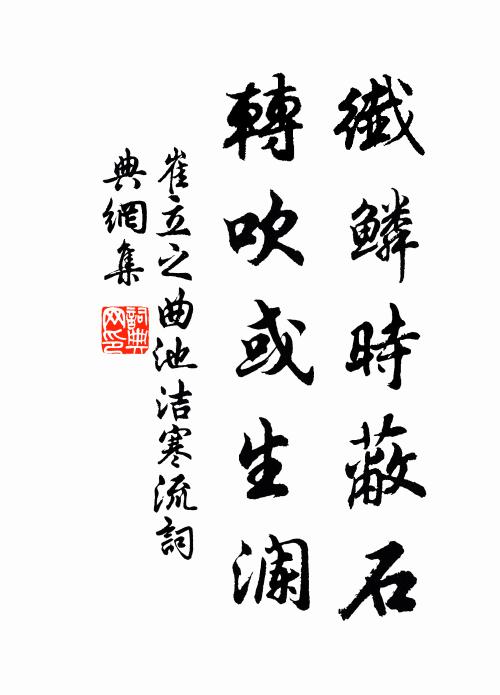 纖鱗時蔽石
轉吹或生澜
崔立之曲池洁寒流詞
典網集
詞典
网印